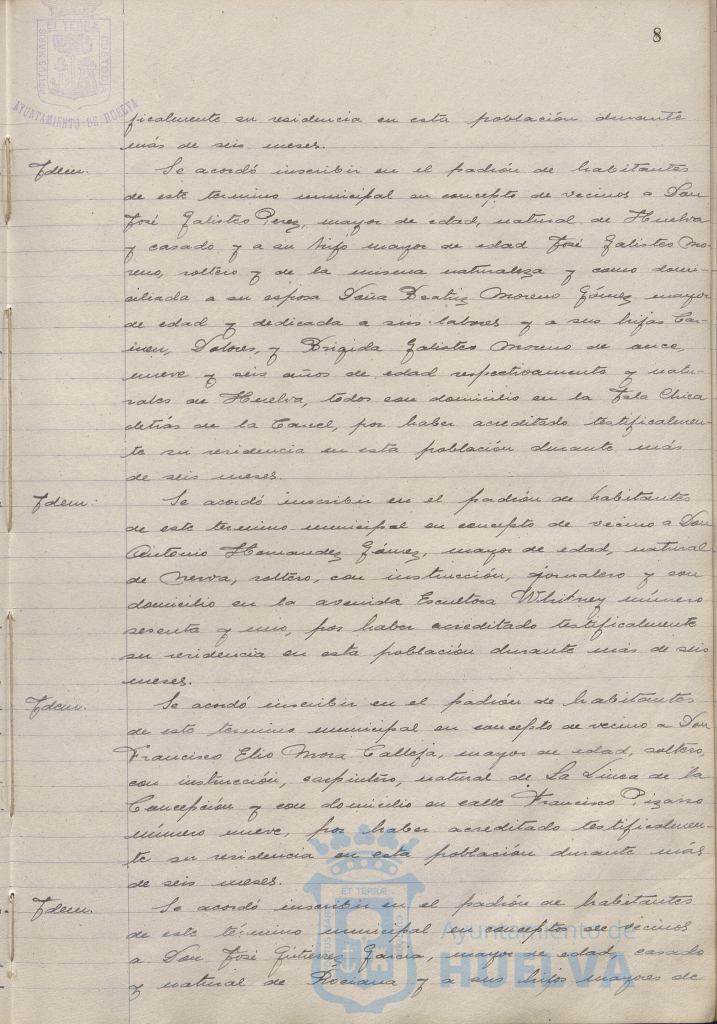 8
AYUNTAMIENTO DE HUELVA
ficalmente su residencia en esta población durante
más de seis meses.
Idem. Se acordó inscribir en el padrón de habitantes
de este termino municipal en concepto de vecinos a Don
José Galisteo Perez, mayor de edad, natural de Huelva
y casado y a su hijo mayor de edad José Galisteo Mo-
reno, soltero y de la misma naturaleza y como domi-
ciliada a su esposa Doña Beatriz Moreno Gómez mayor
de edad y dedicada a sus labores y a sus hijas Car-
men, Dolores, y Brigida Galisteo Moreno de once,
nueve y seis años de edad respectivamente y natu-
rales de Huelva, todos con domicilio en la Isla Chica
detrás de la Carcel, por haber acreditado testificalmen-
te su residencia en esta población durante más
de seis meses.
Idem: Se acordó inscribir en el padrón de habitantes
de este termino municipal en concepto de vecino a Don
Antonio Hernandez Gómez, mayor de edad, natural
de Nerva, soltero, con instrucción, jornalero y con
domicilio en la avenida Escultora Whitney número
sesenta y uno, por haber acreditado testificalmente
su residencia en esta población durante más de seis
meses.
Idem. Se acordó inscribir en el padrón de habitantes
de este termino municipal en concepto de vecino a Don
Francisco Elio Mora Calleja, mayor de edad, soltero,
con instrucción, carpintero, natural de La Linea de la
Concepción y con domicilio en calle Francisco Pizarro
número nueve, por haber acreditado testificalmen-
te su residencia en esta población durante más
de seis meses.
Idem. Se acordó inscribir en el padrón de habitantes
de este término municipal en conceptos de vecinos
a Don José Gutiérrez Garcia, mayor de edad, casado
y natural de Rociana y a sus hijos mayores de
ET TERRÆ
Ayuntamiento de
HUELVA